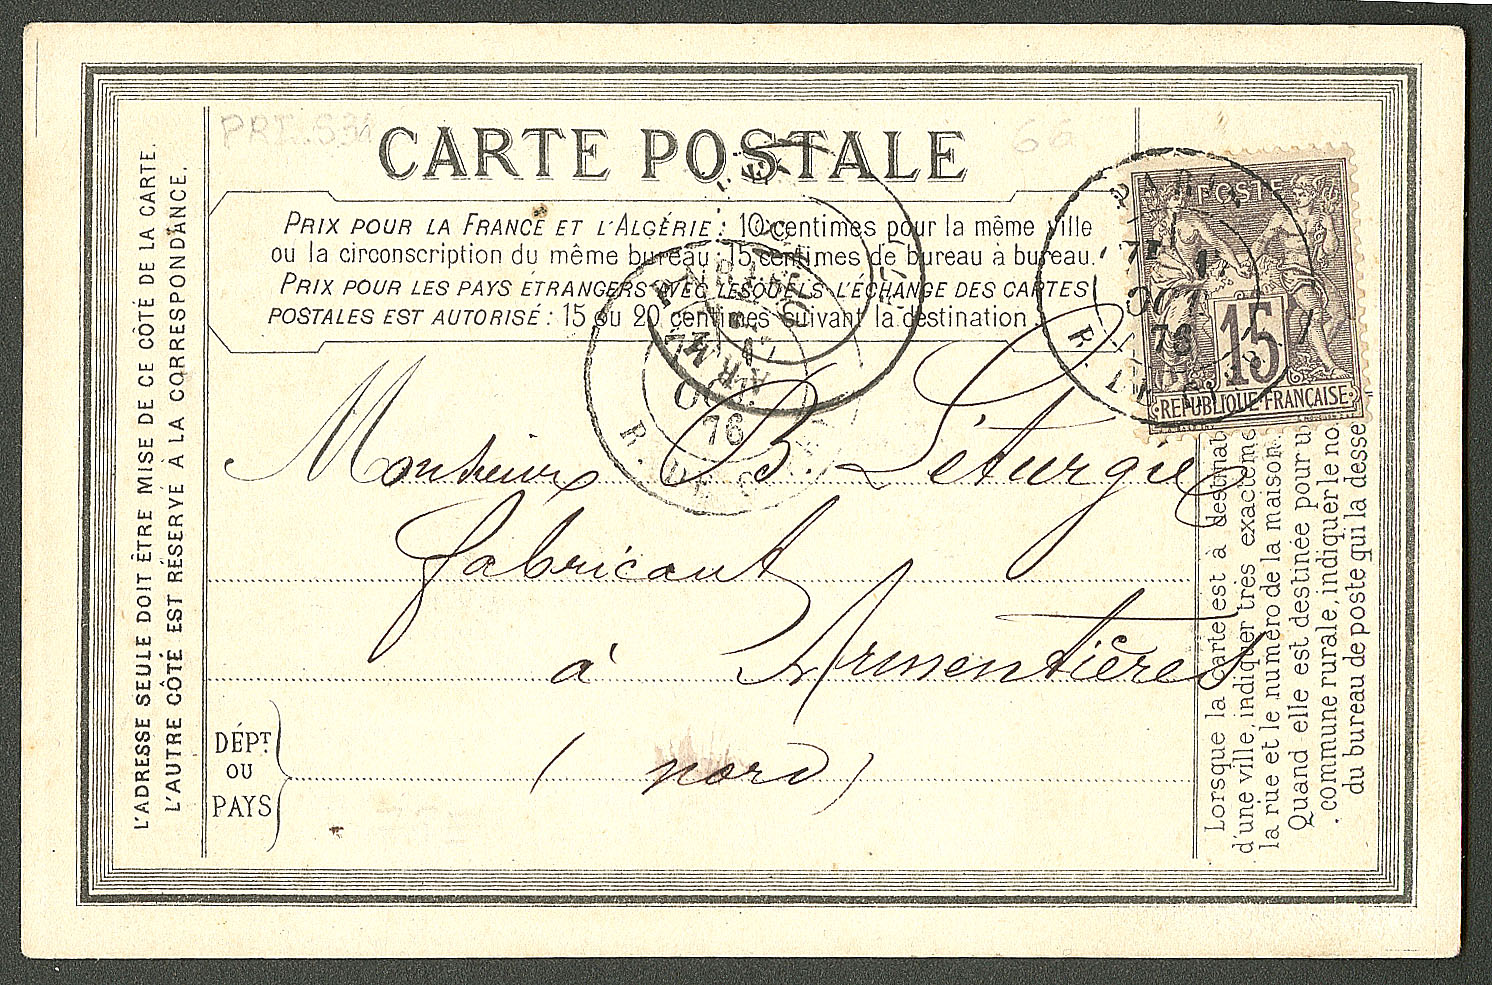 CARTE POSTALE
PRIX POUR LA FRANCE ET L'ALGÉRIE: 10 centimes pour la même ville
ou la circonscription du même bureau; 15 centimes de bureau à bureau.
PRIX POUR LES PAYS ÉTRANGERS AVEC LESQUELS L'ÉCHANGE DES CARTES
POSTALES EST AUTORISÉ: 15 ou 20 centimes suivant la destination.
L'ADRESSE SEULE DOIT ÊTRE MISE DE CE CÔTÉ DE LA CARTE.
L'AUTRE CÔTÉ EST RÉSERVÉ À LA CORRESPONDANCE.
POSTE
15
REPUBLIQUE FRANÇAISE
PARIS
OCT
76
OCT
76
Monsieur B Léturgie
fabricant
à Armentières
(nord)
DÉPT
OU
PAYS
Lorsque la carte est à destinat
d'une ville, indiquer très exacteme
la rue et le numéro de la maison.
Quand elle est destinée pour u
commune rurale, indiquer le no
du bureau de poste qui la desse